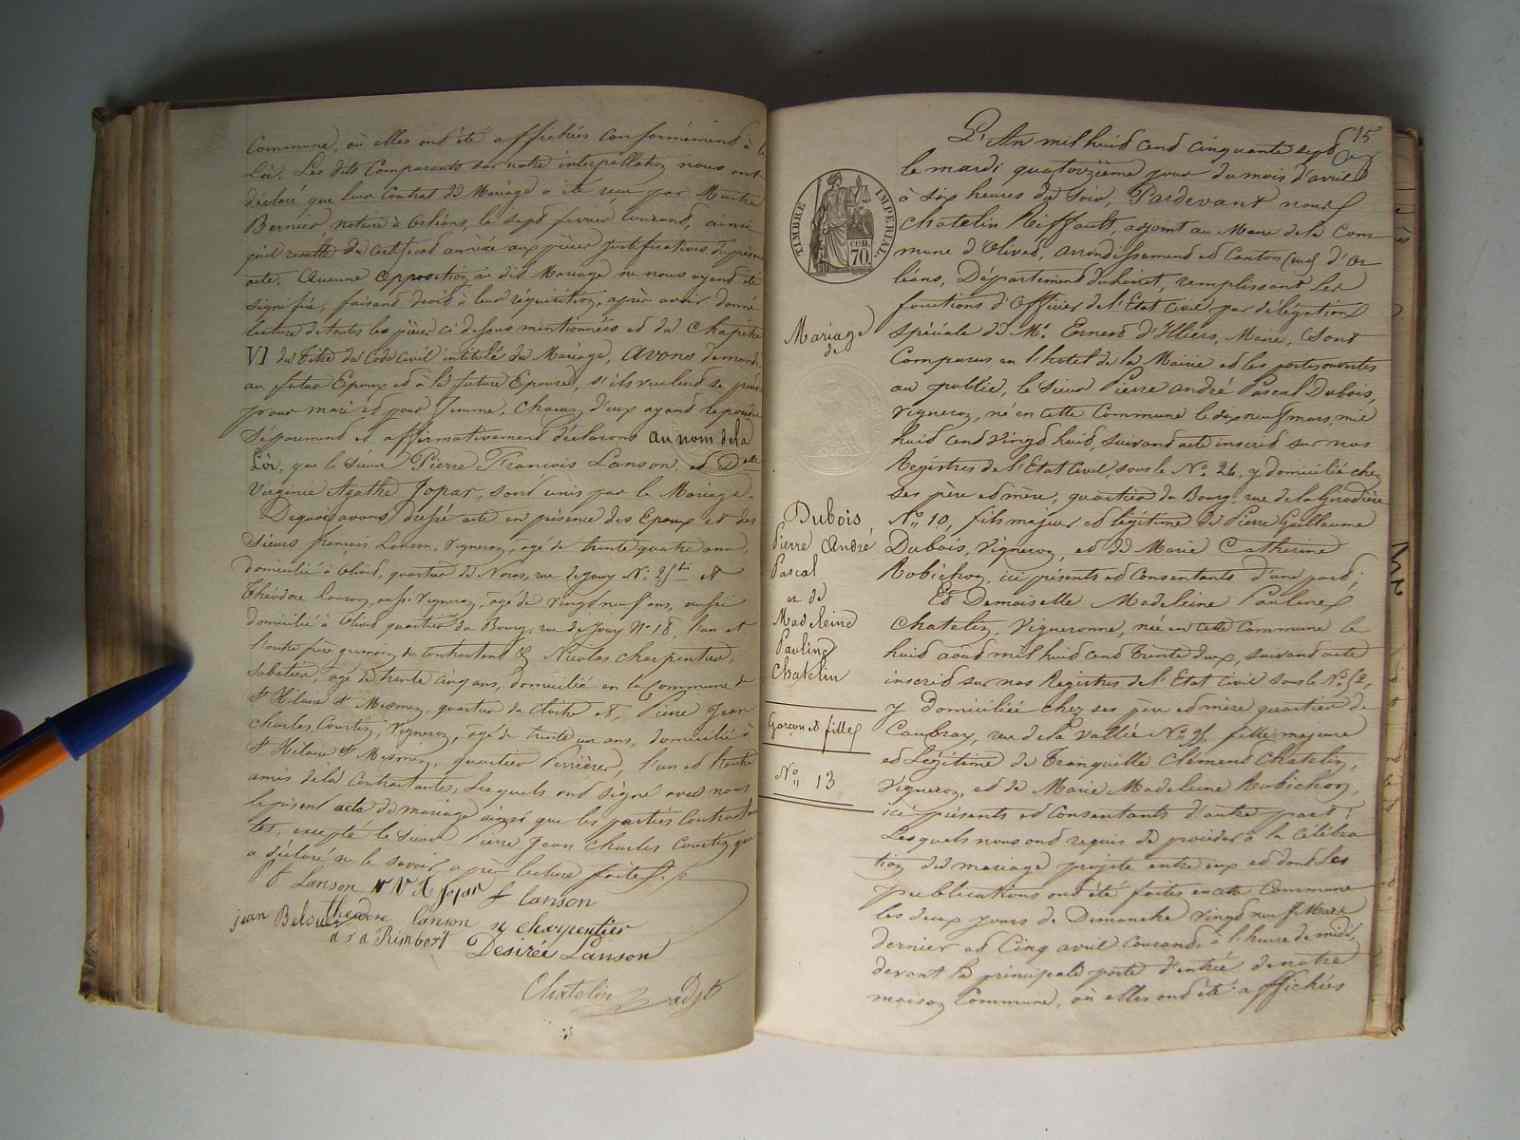 Commune, où elles ont été affichées conformément à la
Loi. Les dits Comparants sur notre interpellation nous ont
déclaré, que leur Contrat de Mariage a été reçu par Maître
Bernier, notaire à Orléans, le sept février courant, ainsi
qu'il résulte du Certificat annexé aux pièces justificatives du présent
acte. Aucune opposition au dit Mariage ne nous ayant été
signifiée, faisant droit à leur réquisition, après avoir donné
lecture de toutes les pièces ci-dessus mentionnées et du Chapitre
VI du Titre du Code Civil intitulé du Mariage, avons demandé
au futur Epoux et à la future Epouse, s'ils veulent se prendre
pour mari et pour femme, chacun d'eux ayant répondu
séparément et affirmativement déclarons au nom de la
Loi, que le sieur Pierre François Lanson, et Dlle
Virginie Agathe Jopar, sont unis par le Mariage.
De quoi avons dressé acte en présence des Epoux et des
Sieurs françois Lanson, Vigneron, agé de trente quatre ans,
domicilié à Olivet, quartier de Noras, rue de Jouy No 25 et
Théodore Lanson, aussi Vigneron, agé de Vingt neuf ans, aussi
domicilié à Olivet quartier du Bourg, rue de Jouy No 18, l'un et
l'autre frère germain du Contractant; Nicolas Charpentier,
Sabotier, agé de trente cinq ans, domicilié en la Commune de
St Hilaire St Mesmin, quartier du Cloitre et, Pierre Jean
Charles Courtin, Vigneron, agé de trente un ans, domicilié à
St Hilaire St Mesmin, quartier l'un et l'autre
amis de la Contractante, Lesquels ont signé avec nous
le présent acte de mariage ainsi que les parties Contractan
tes, excepté le sieur Pierre Jean Charles Courtin qui
a déclaré ne le savoir après lecture faite.
f Lanson V A Jopar f Lanson
jean théodore lanson n charpentier
Rimbert Desirée Lanson
Chatelin adjt
15
L'An mil huit cent cinquante sept
le mardi quatorzième jour du mois d'avril
à six heures du soir, Pardevant nous
Chatelin Riffault, adjoint au Maire de la Com
mune d'Olivet, arrondissement et Canton d'Or
léans, Département du Loiret, remplissant les
fonctions d'Officier de l'Etat Civil par délégation
spéciale de Mr. Ernest d'Illiers, Maire, Sont
Comparus en l'hotel de la Mairie et les portes ouvertes
au public, le sieur Pierre andré Pascal Dubois,
Vigneron, né en cette Commune le dix neuf mars, mil
huit cent vingt huit, suivant acte inscrit sur nos
Registres de l'Etat Civil, sous le No. 26. y domicilié chez
ses père et mère, quartier du Bourg, rue de la Girodière
No 10, fils majeur et légitime de Pierre Guillaume
Dubois, Vigneron, et de Marie Catherine
Robichon, ici présents et Consentants d'une part;
Et Demoiselle Madeleine Pauline
Chatelin, Vigneronne, née en cette Commune le
huit août mil huit cent trente deux, suivant acte
inscrit sur nos Registres de l'Etat Civil sous le No.
y domiciliée chez ses père et mère quartier de
Caubray, rue de la Vallée No. fille majeure
et légitime de Tranquille Clément Chatelin,
Vigneron, et de Marie Madeleine Robichon,
ici présents et Consentants d'autre part;
Lesquels nous ont requis de procéder à la célébra
tion du mariage projeté entre eux et dont les
publications ont été faites en cette Commune
les deux jours de Dimanche vingt neuf Mars
dernier et Cinq avril Courant, à l'heure de midi,
devant la principale porte d'entrée de notre
maison Commune, où elles ont été affichées
TIMBRE IMPERIAL
COM. 70
Mariage
de
Dubois,
Pierre André
Pascal
et de
Madeleine
Pauline
Chatelin
Garçon et fille
No 13